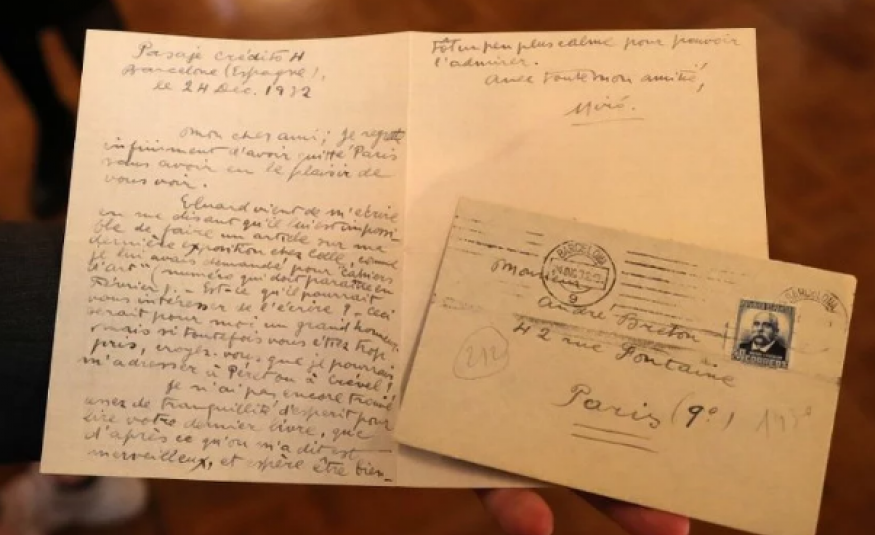 Pasaje Crédito 4
Barcelone (Espagne),
le 24 Déc. 1932
Mon cher ami; je regrette
infiniment d'avoir quitté Paris
sans avoir eu le plaisir de
vous voir.
Eluard vient de m'écrire
en me disant qu'il lui est impossi-
ble de faire un article sur ma
dernière exposition chez Colle, comme
je lui avais demandé pour "Cahiers
d'art" (numéro qui doit paraître en
Février). - Est-ce qu'il pourrait
vous intéresser de l'écrire? - ceci
serait pour moi un grand honneur.
mais si toutefois vous êtes trop
pris, croyez-vous que je pourrais
m'adresser à Péret ou à Crevel?
Je n'ai pas encore trouvé
assez de tranquillité d'esprit pour
lire votre dernier livre, que
d'après ce qu'on m'a dit est
merveilleux, et espère être bien-
tôt un peu plus calme pour pouvoir
l'admirer.
Avec toute mon amitié,
Miró.
BARCELONA
9
Monsieur
André Breton
42 rue Fontaine
à
Paris (9e)
(212)
1932
BARCELONA